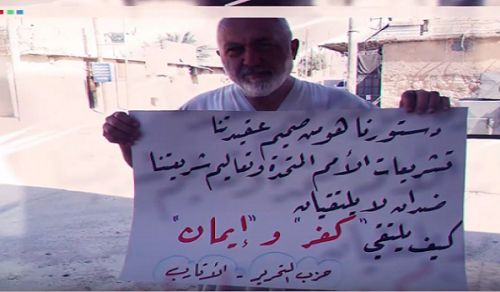 دستورنا هو من صميم عقيدتنا
تشريعات الأمم المتحدة وتعاليم شريعتنا
ضدان لا يلتقيان
كيف يلتقي "كفر" و "إيمان"
حزب التحرير - الأتارب